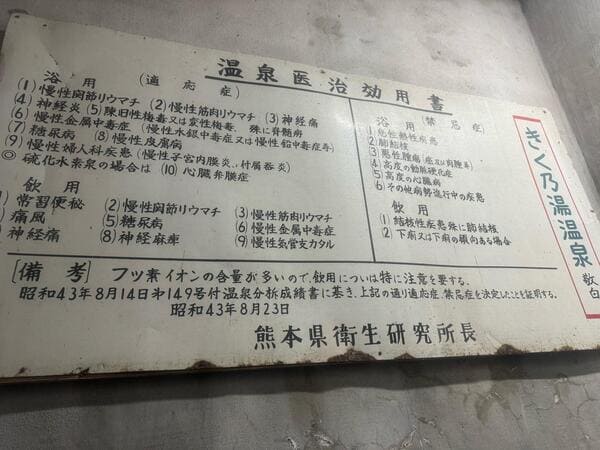 温泉医治効用書
浴用(適応症)
(1)慢性関節リウマチ (2)慢性筋肉リウマチ (3)神経痛
(4)神経炎 (5)陳旧性梅毒又は変性梅毒、殊に脊髄病
(6)慢性金属中毒症(慢性水銀中毒症又は慢性鉛中毒症等)
(7)糖尿病 (8)慢性皮膚病
(9)慢性婦人科疾患(慢性子宮内膜炎、付属器炎)
◎ 硫化水素泉の場合は (10)心臓弁膜症
飲用
)常習便秘 (2)慢性関節リウマチ (3)慢性筋肉リウマチ
)痛風 (5)糖尿病 (6)慢性金属中毒症
)神経痛 (8)神経麻痺 (9)慢性気管支カタル
浴用(禁忌症)
(1)急性熱性疾患
(2)肺結核
(3)悪性腫瘍(癌及び肉腫等)
(4)高度の動脈硬化症
(5)高度の心臓病
(6)その他病勢進行中の疾患
飲用
(1)結核性疾患殊に肺結核
(2)下痢又は下痢の傾向ある場合
[備考] フッ素イオンの含量が多いので、飲用については特に注意を要する。
昭和43年8月14日第149号付温泉分拆成績書に基き、上記の通り適応症、禁忌症を決定したことを証明する。
昭和43年8月23日
熊本県衛生研究所長
きく乃湯温泉
敬白